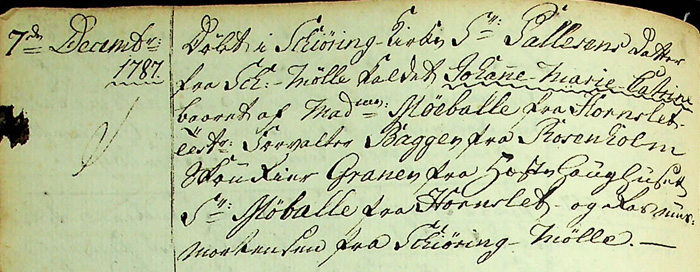 7de Decembr:
1787.
Döbt i Schiöring-Kirke Sr: Pallesens Datter
fra Sch:-Mölle kaldet Johanne-Marie-Cathrine
baaret af Madme: Möeballe fra Hornslet-
Test: Forvalter Baggen fra Rosenholm
Granen fra
Sr: Möballe fra Hornslet- og Rasmus-
Mortensen fra Schiöring-Mölle.-